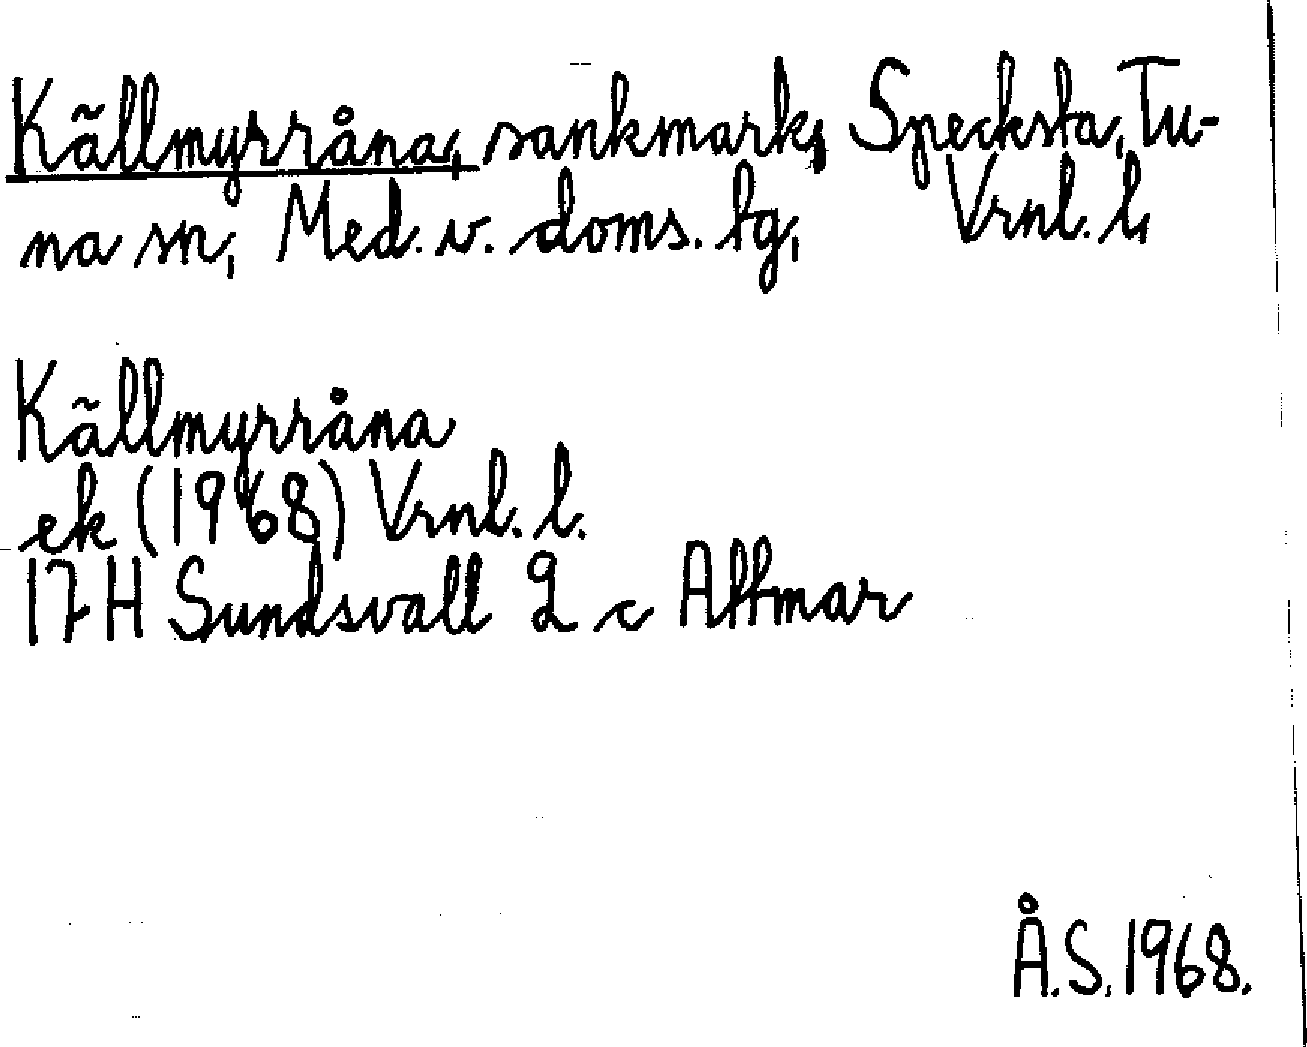 Källmyrråna, sankmark, Specksta, Tu-
na sn, Med. v. doms. tg, Vrnl. l,
Källmyrråna
ek (1968) Vrnl. l.
17H Sundsvall 2 c Attmar
Å.S. 1968.